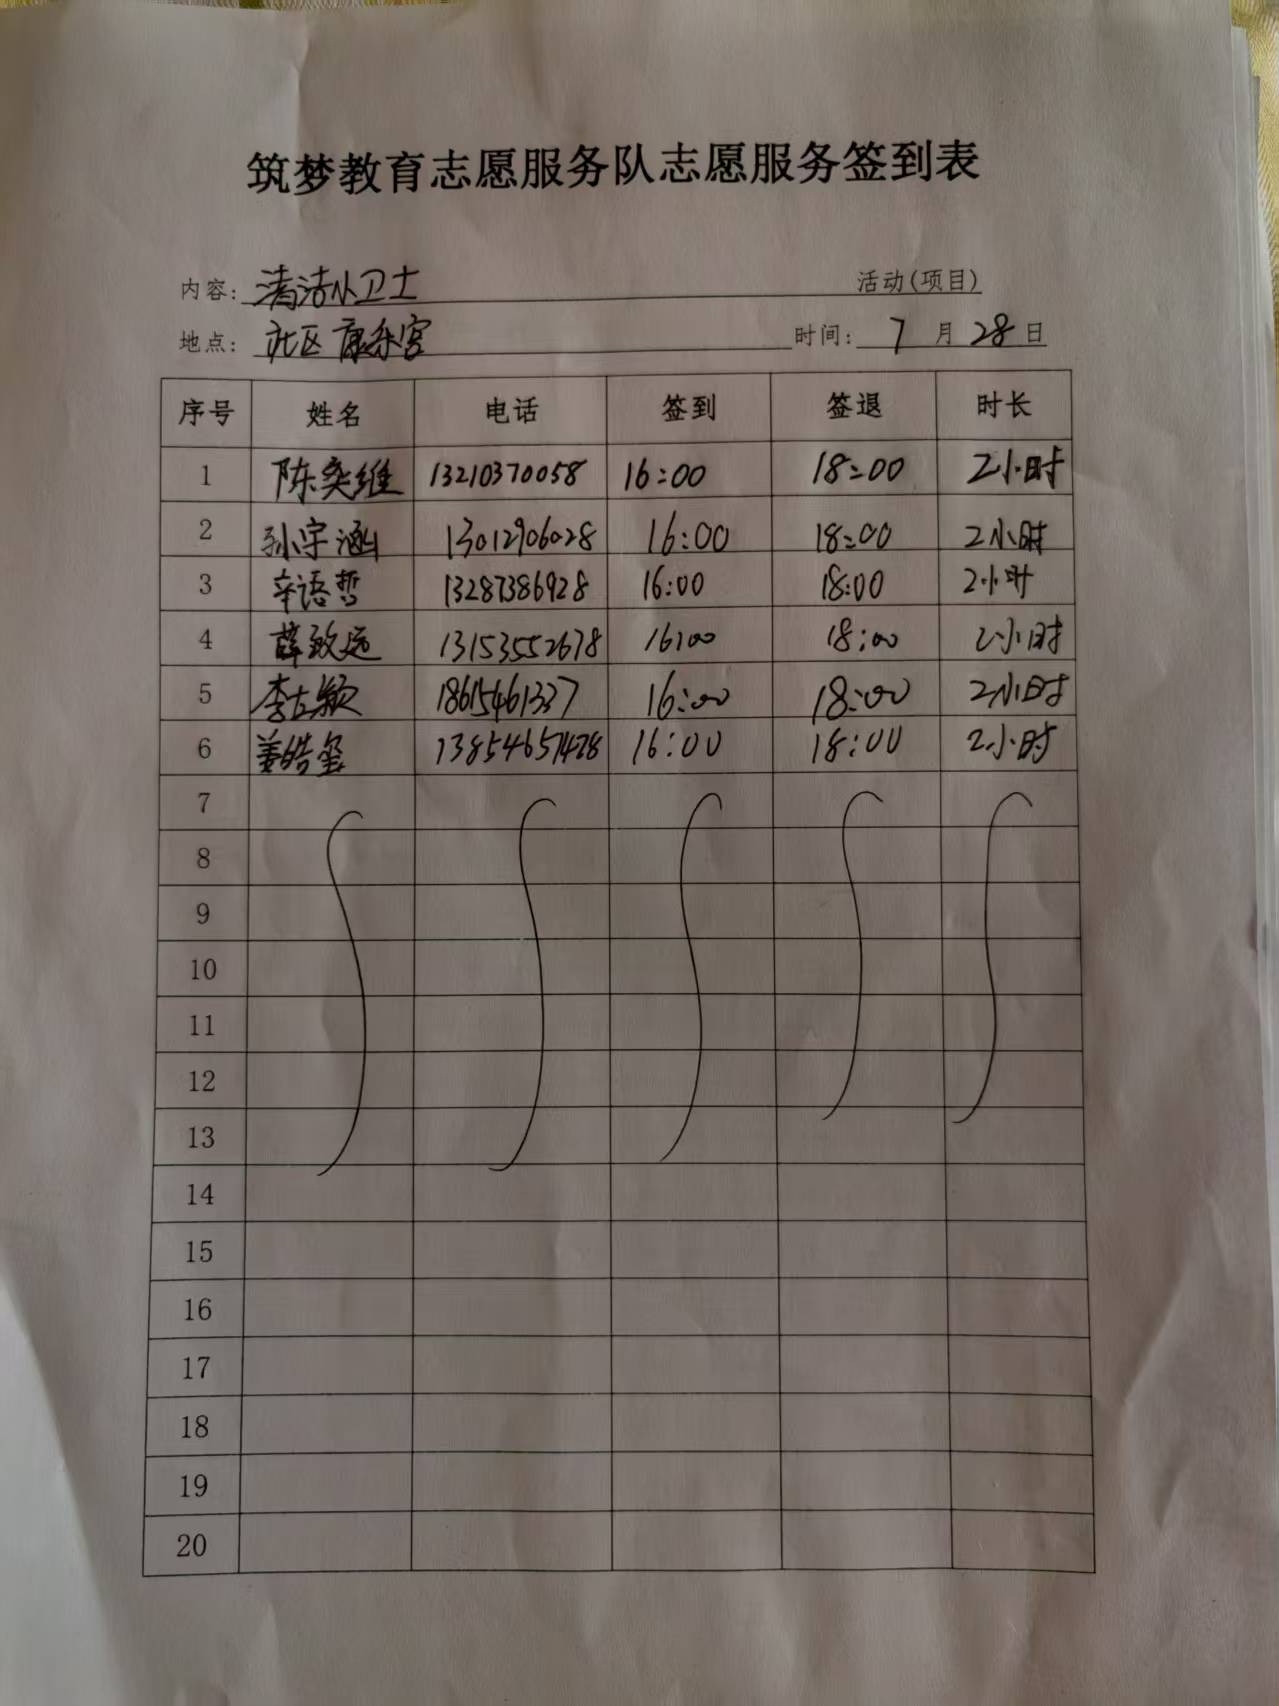 筑梦教育志愿服务队志愿服务签到表
内容: 清洁小卫士 活动(项目)
地点: 社区康乐宫 时间: 7 月 28 日
序号 姓名 电话 签到 签退 时长
1 陈奕维 13210370058 16:00 18:00 2小时
2 孙宇涵 13012906028 16:00 18:00 2小时
3 辛语哲 13287386928 16:00 18:00 2小时
4 薛致远 13153552678 16:00 18:00 2小时
5 18615461337 16:00 18:00 2小时
6 姜皓玺 13854657428 16:00 18:00 2小时
7
8
9
10
11
12
13
14
15
16
17
18
19
20